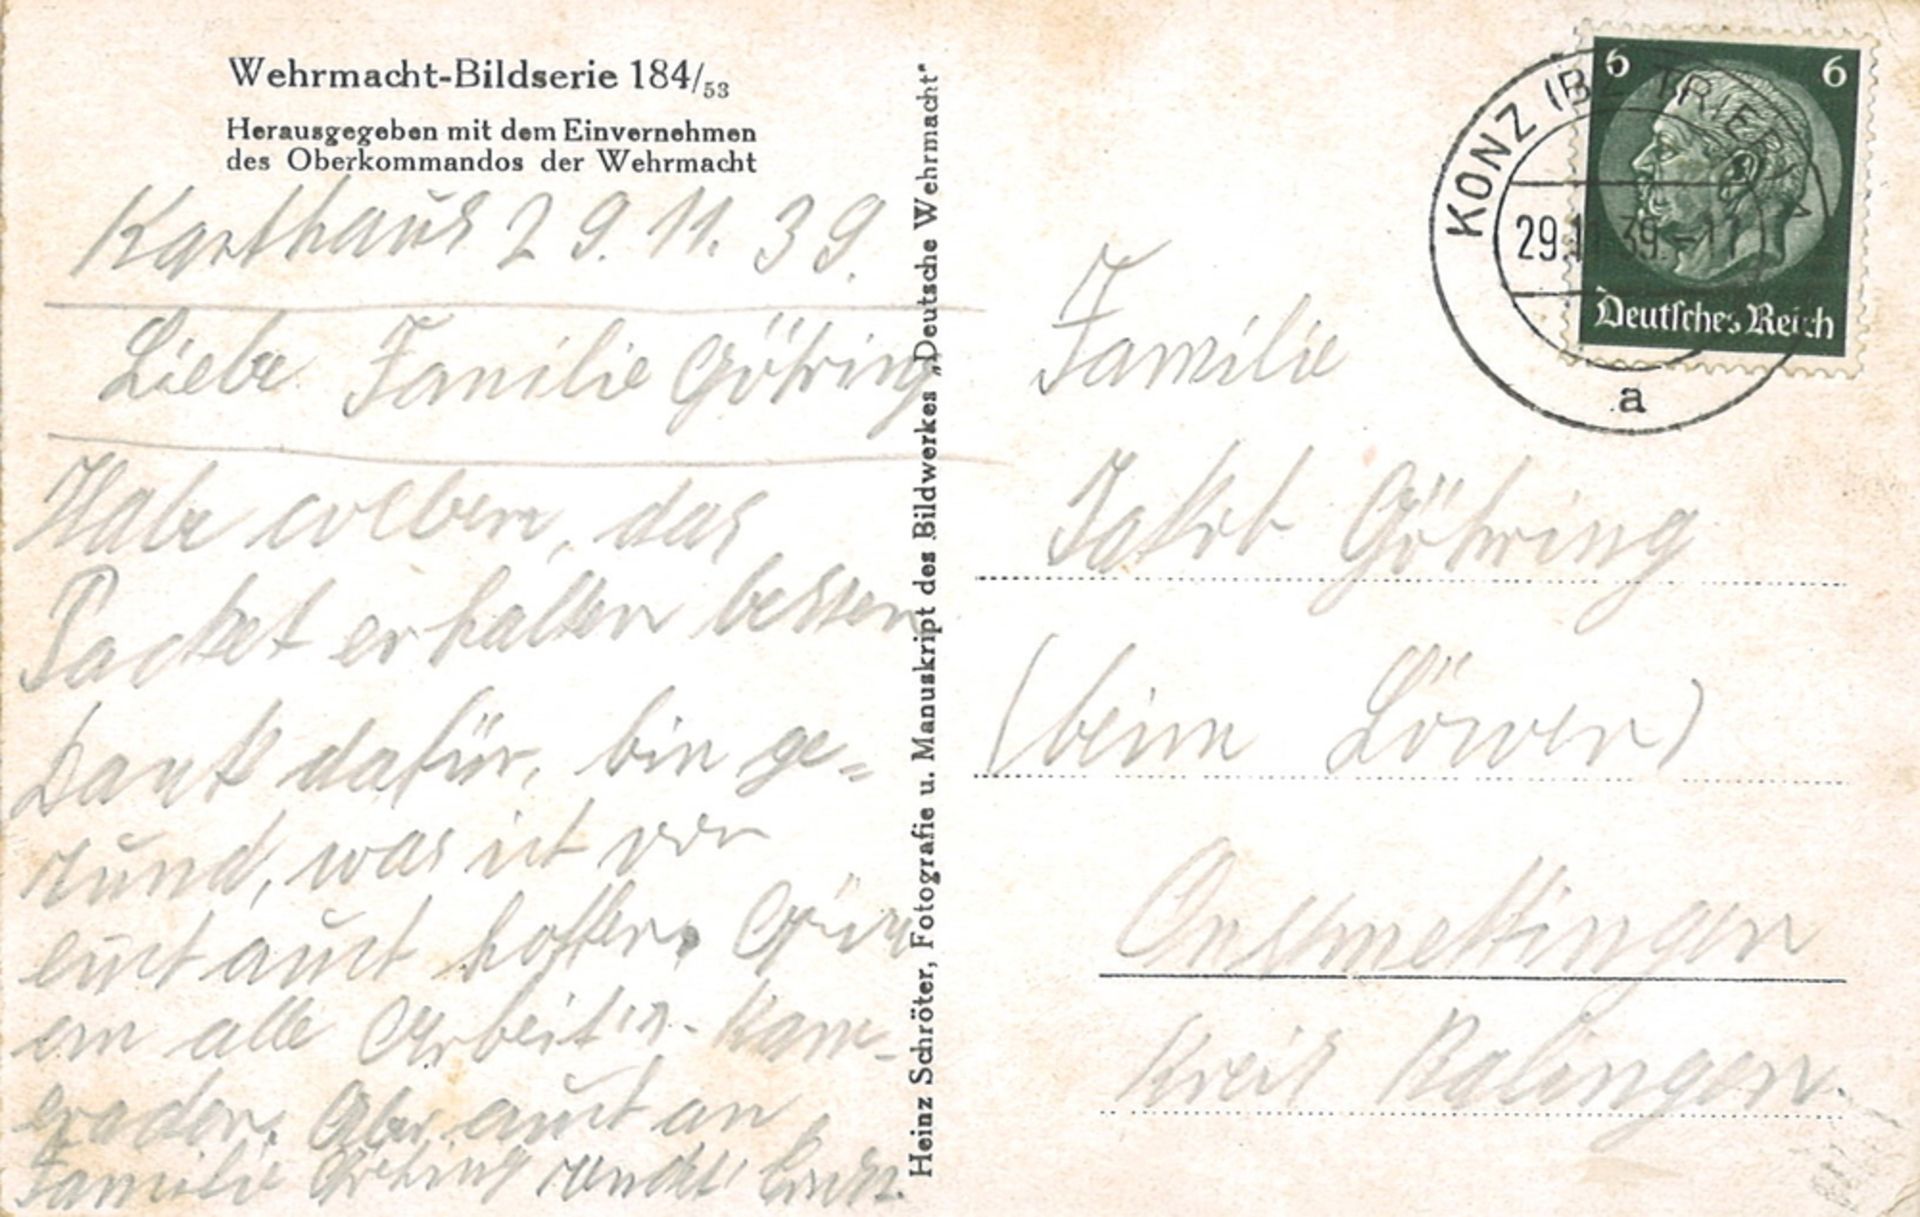 Wehrmacht-Bildserie 184/53
Herausgegeben mit dem Einvernehmen
des Oberkommandos der Wehrmacht
Karthaus 29.11.39.
Liebe Familie Göhring
Habe soeben, das
Packet erhalten besten
Dank dafür, bin ge=
sund, was ich von
euch auch hoffe. Grüße
an alle Arbeits-Kam-
eraden. Aber auch an
Familie Göhring sendet
Heinz Schröter, Fotografie u. Manuskript des Bildwerkes „Deutsche Wehrmacht"
KONZ (BZ. TRIER)
29.11.39.-17
a
6 6
Deutsches Reich
Familie
Jakob Göhring
(beim Löwen)
Onstmettingen
Kreis Balingen.